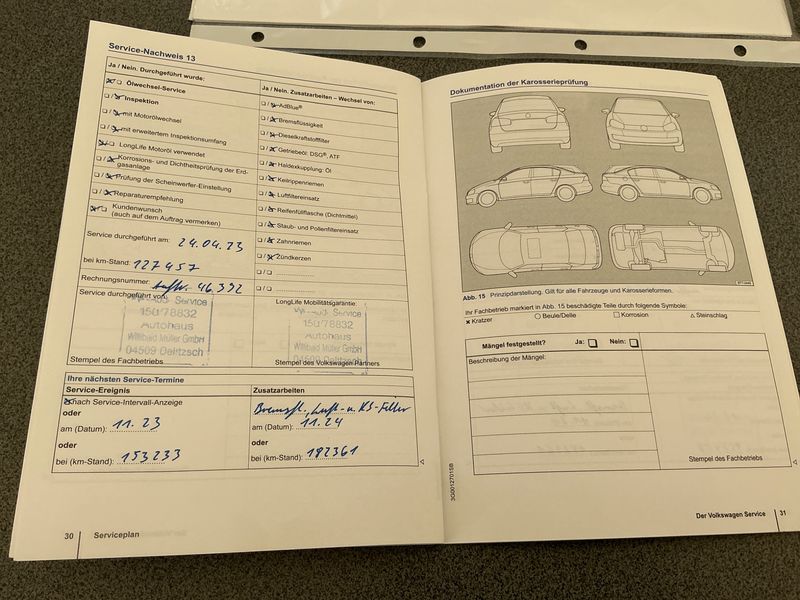 Service-Nachweis 13
Ja / Nein. Durchgeführt wurde:
Ölwechsel-Service
Inspektion
mit Motorölwechsel
mit erweitertem Inspektionsumfang
LongLife Motoröl verwendet
Korrosions- und Dichtheitsprüfung der Erd-
gasanlage
Prüfung der Scheinwerfer-Einstellung
Reparaturempfehlung
Kundenwunsch
(auch auf dem Auftrag vermerken)
Service durchgeführt am: 24.04.23
bei km-Stand: 127457
Rechnungsnummer: 46.392
Service durchgeführt von:
Service
150/78832
Autohaus
Willibald Müller GmbH
04509 Delitzsch
Stempel des Fachbetriebs
Ja / Nein. Zusatzarbeiten – Wechsel von:
AdBlue®
Bremsflüssigkeit
Dieselkraftstofffilter
Getriebeöl: DSG®, ATF
Haldexkupplung: Öl
Keilrippenriemen
Luftfiltereinsatz
Reifenfüllflasche (Dichtmittel)
Staub- und Pollenfiltereinsatz
Zahnriemen
Zündkerzen
LongLife Mobilitätsgarantie:
Service
150/78832
Autohaus
Willibald Müller GmbH
04509 Delitzsch
Stempel des Volkswagen Partners
Ihre nächsten Service-Termine
Service-Ereignis
nach Service-Intervall-Anzeige
oder
am (Datum): 11.23
oder
bei (km-Stand): 153233
Zusatzarbeiten
Bremsfl., Luft- u. KS-Filter
am (Datum): 11.24
oder
bei (km-Stand): 182361
30 Serviceplan
Dokumentation der Karosserieprüfung
Abb. 15 Prinzipdarstellung. Gilt für alle Fahrzeuge und Karosserieformen.
Ihr Fachbetrieb markiert in Abb. 15 beschädigte Teile durch folgende Symbole:
× Kratzer ○ Beule/Delle □ Korrosion △ Steinschlag
Mängel festgestellt? Ja: Nein:
Beschreibung der Mängel:
Stempel des Fachbetriebs
3G0012701SB
Der Volkswagen Service 31